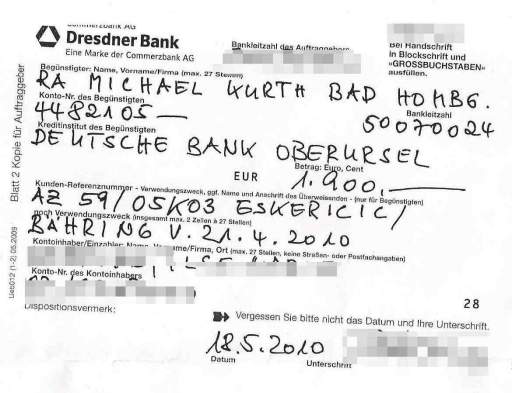 Commerzbank AG
Dresdner Bank
Eine Marke der Commerzbank AG
Bankleitzahl des Auftraggebers
Bei Handschrift
in Blockschrift und
»GROSSBUCHSTABEN«
ausfüllen.
Blatt 2 Kopie für Auftraggeber
Begünstigter: Name, Vorname/Firma (max. 27 Stellen)
RA MICHAEL KURTH BAD HOMBG.
Konto-Nr. des Begünstigten
Bankleitzahl
4482105—
50070024
Kreditinstitut des Begünstigten
DEUTSCHE BANK OBERURSEL
Betrag: Euro, Cent
EUR 1.900,—
Kunden-Referenznummer - Verwendungszweck, ggf. Name und Anschrift des Überweisenden - (nur für Begünstigten)
AZ 59/05K03 ESKERICIC/
noch Verwendungszweck (insgesamt max. 2 Zeilen à 27 Stellen)
BÄHRING V. 21.4.2010
Kontoinhaber/Einzahler: Name, Vorname/Firma, Ort (max. 27 Stellen, keine Straßen- oder Postfachangaben)
Konto-Nr. des Kontoinhabers
28
Dispositionsvermerk:
Vergessen Sie bitte nicht das Datum und Ihre Unterschrift.
18.5.2010
Datum
Unterschrift